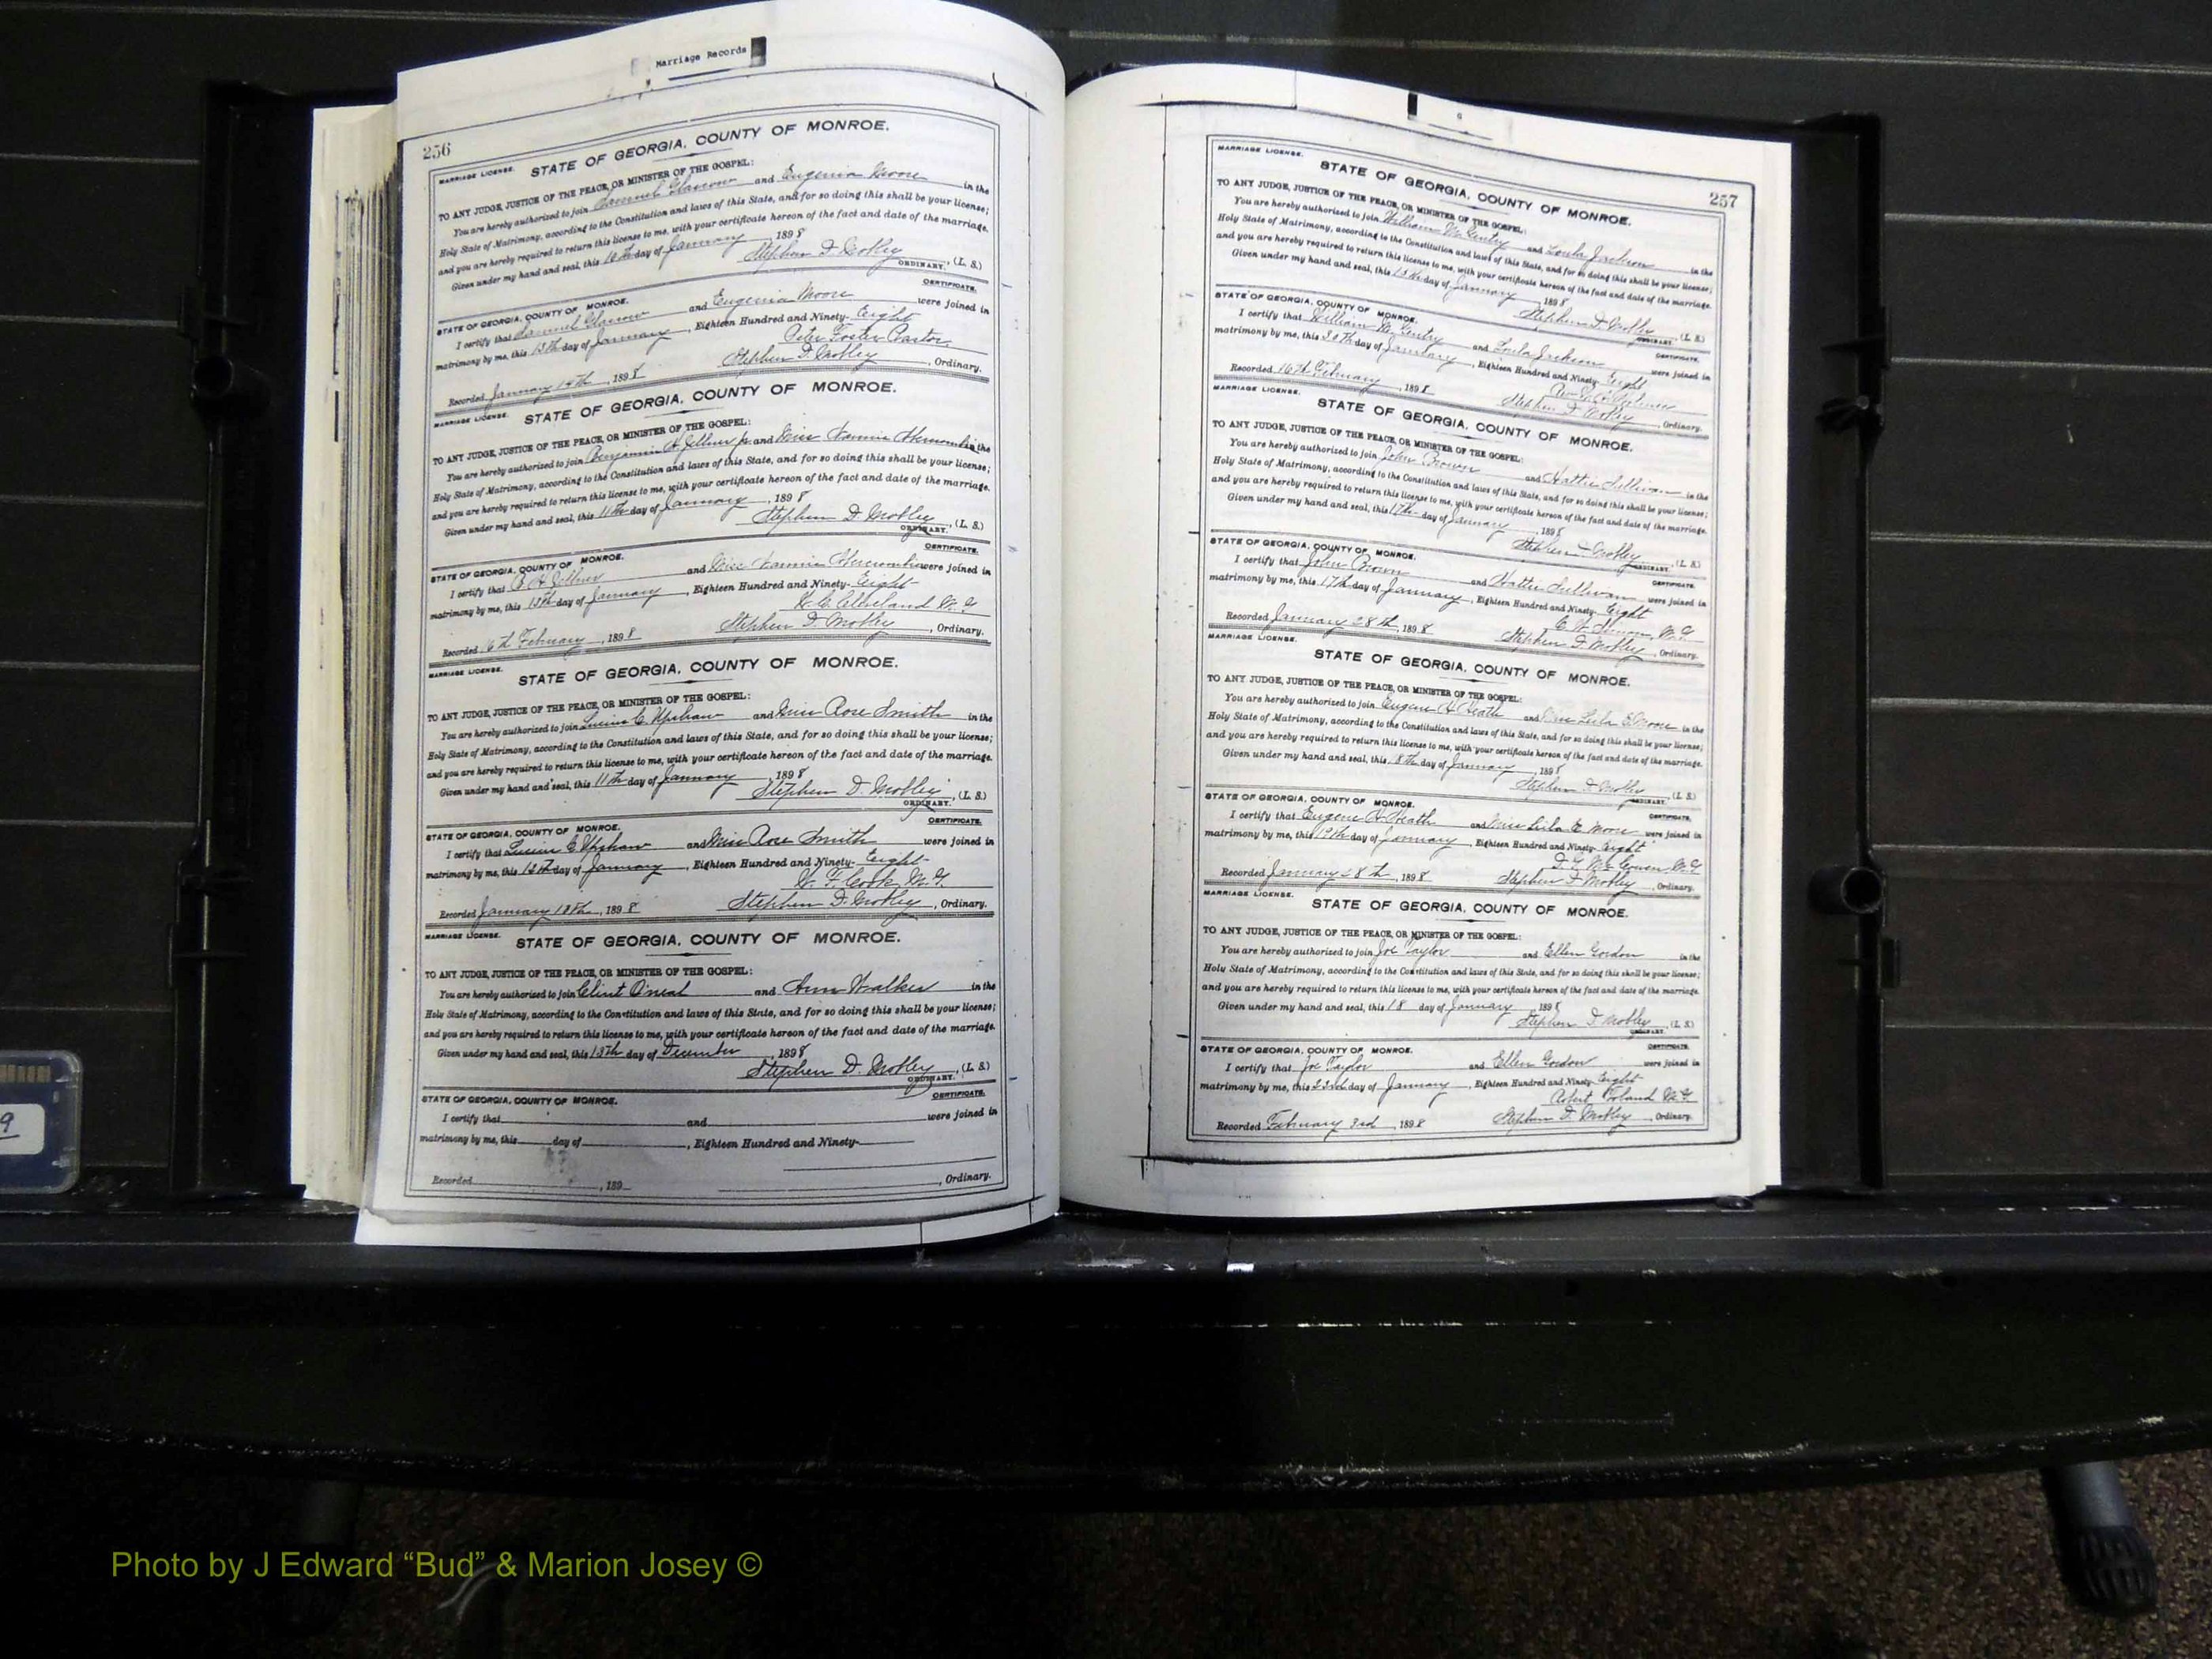 Marriage Records
256
MARRIAGE LICENSE. STATE OF GEORGIA, COUNTY OF MONROE.
TO ANY JUDGE, JUSTICE OF THE PEACE, OR MINISTER OF THE GOSPEL:
You are hereby authorized to join Samuel Glascow and Eugenia Moore in the
Holy State of Matrimony, according to the Constitution and laws of this State, and for so doing this shall be your license;
and you are hereby required to return this license to me, with your certificate hereon of the fact and date of the marriage.
Given under my hand and seal, this 10th day of January, 1898
Stephen D. Mobley (L. S.)
ORDINARY.
CERTIFICATE.
STATE OF GEORGIA, COUNTY OF MONROE.
I certify that Samuel Glascow and Eugenia Moore were joined in
matrimony by me, this 13th day of January, Eighteen Hundred and Ninety-Eight
Peter Foster Pastor
Recorded January 14th, 1898 Stephen D. Mobley, Ordinary.
MARRIAGE LICENSE. STATE OF GEORGIA, COUNTY OF MONROE.
TO ANY JUDGE, JUSTICE OF THE PEACE, OR MINISTER OF THE GOSPEL:
You are hereby authorized to join Benjamin H. Jr. and Miss Fannie in the
Holy State of Matrimony, according to the Constitution and laws of this State, and for so doing this shall be your license;
and you are hereby required to return this license to me, with your certificate hereon of the fact and date of the marriage.
Given under my hand and seal, this 11th day of January, 1898
Stephen D. Mobley, (L. S.)
ORDINARY.
CERTIFICATE.
STATE OF GEORGIA, COUNTY OF MONROE.
I certify that B. H. and Miss Fannie were joined in
matrimony by me, this 13th day of January, Eighteen Hundred and Ninety-Eight
W. C. Cleveland M. G.
Recorded 6th February, 1898 Stephen D. Mobley, Ordinary.
MARRIAGE LICENSE. STATE OF GEORGIA, COUNTY OF MONROE.
TO ANY JUDGE, JUSTICE OF THE PEACE, OR MINISTER OF THE GOSPEL:
You are hereby authorized to join Lucius C. Upshaw and Miss Rose Smith in the
Holy State of Matrimony, according to the Constitution and laws of this State, and for so doing this shall be your license;
and you are hereby required to return this license to me, with your certificate hereon of the fact and date of the marriage.
Given under my hand and seal, this 11th day of January, 1898
Stephen D. Mobley, (L. S.)
ORDINARY.
CERTIFICATE.
STATE OF GEORGIA, COUNTY OF MONROE.
I certify that Lucius C. Upshaw and Miss Rose Smith were joined in
matrimony by me, this 12th day of January, Eighteen Hundred and Ninety-Eight
W. F. Cook M. G.
Recorded January 18th, 1898 Stephen D. Mobley, Ordinary.
MARRIAGE LICENSE. STATE OF GEORGIA, COUNTY OF MONROE.
TO ANY JUDGE, JUSTICE OF THE PEACE, OR MINISTER OF THE GOSPEL:
You are hereby authorized to join Clint O'neal and Ann Walker in the
Holy State of Matrimony, according to the Constitution and laws of this State, and for so doing this shall be your license;
and you are hereby required to return this license to me, with your certificate hereon of the fact and date of the marriage.
Given under my hand and seal, this 13th day of December, 1898
Stephen D. Mobley, (L. S.)
ORDINARY.
CERTIFICATE.
STATE OF GEORGIA, COUNTY OF MONROE.
I certify that and were joined in
matrimony by me, this day of, Eighteen Hundred and Ninety-
Recorded, 189 , Ordinary.
257
MARRIAGE LICENSE. STATE OF GEORGIA, COUNTY OF MONROE.
TO ANY JUDGE, JUSTICE OF THE PEACE, OR MINISTER OF THE GOSPEL:
You are hereby authorized to join William M. Gentry and Loula Jackson in the
Holy State of Matrimony, according to the Constitution and laws of this State, and for so doing this shall be your license;
and you are hereby required to return this license to me, with your certificate hereon of the fact and date of the marriage.
Given under my hand and seal, this 15th day of January, 1898
Stephen D. Mobley (L. S.)
ORDINARY.
CERTIFICATE.
STATE OF GEORGIA, COUNTY OF MONROE.
I certify that William M. Gentry and Loula Jackson were joined in
matrimony by me, this 30th day of January, Eighteen Hundred and Ninety-Eight
Recorded 16th February, 1898 Stephen D. Mobley, Ordinary.
MARRIAGE LICENSE. STATE OF GEORGIA, COUNTY OF MONROE.
TO ANY JUDGE, JUSTICE OF THE PEACE, OR MINISTER OF THE GOSPEL:
You are hereby authorized to join John Brown and Hattie Sullivan in the
Holy State of Matrimony, according to the Constitution and laws of this State, and for so doing this shall be your license;
and you are hereby required to return this license to me, with your certificate hereon of the fact and date of the marriage.
Given under my hand and seal, this 17th day of January, 1898
Stephen D. Mobley (L. S.)
ORDINARY.
CERTIFICATE.
STATE OF GEORGIA, COUNTY OF MONROE.
I certify that John Brown and Hattie Sullivan were joined in
matrimony by me, this 17th day of January, Eighteen Hundred and Ninety-Eight
M. G.
Recorded January 28th, 1898 Stephen D. Mobley, Ordinary.
MARRIAGE LICENSE.
STATE OF GEORGIA, COUNTY OF MONROE.
TO ANY JUDGE, JUSTICE OF THE PEACE, OR MINISTER OF THE GOSPEL:
You are hereby authorized to join Eugene H. Heath and Miss Lula E Moore in the
Holy State of Matrimony, according to the Constitution and laws of this State, and for so doing this shall be your license;
and you are hereby required to return this license to me, with your certificate hereon of the fact and date of the marriage.
Given under my hand and seal, this 18th day of January, 1898
Stephen D Mobley, (L. S.)
ORDINARY.
CERTIFICATE.
STATE OF GEORGIA, COUNTY OF MONROE.
I certify that Eugene H. Heath and Miss Lula E Moore were joined in
matrimony by me, this 19th day of January, Eighteen Hundred and Ninety-Eight
M. G.
Recorded January 28th, 1898 Stephen D Mobley, Ordinary.
MARRIAGE LICENSE.
STATE OF GEORGIA, COUNTY OF MONROE.
TO ANY JUDGE, JUSTICE OF THE PEACE, OR MINISTER OF THE GOSPEL:
You are hereby authorized to join Joe Taylor and Ellen Gordon in the
Holy State of Matrimony, according to the Constitution and laws of this State, and for so doing this shall be your license;
and you are hereby required to return this license to me, with your certificate hereon of the fact and date of the marriage.
Given under my hand and seal, this 18 day of January, 1898
Stephen D Mobley, (L. S.)
ORDINARY.
CERTIFICATE.
STATE OF GEORGIA, COUNTY OF MONROE.
I certify that Joe Taylor and Ellen Gordon were joined in
matrimony by me, this 23rd day of January, Eighteen Hundred and Ninety-Eight
Robert Toland M. G.
Recorded February 3rd, 1898 Stephen D. Mobley, Ordinary.
9
Photo by J Edward “Bud” & Marion Josey ©